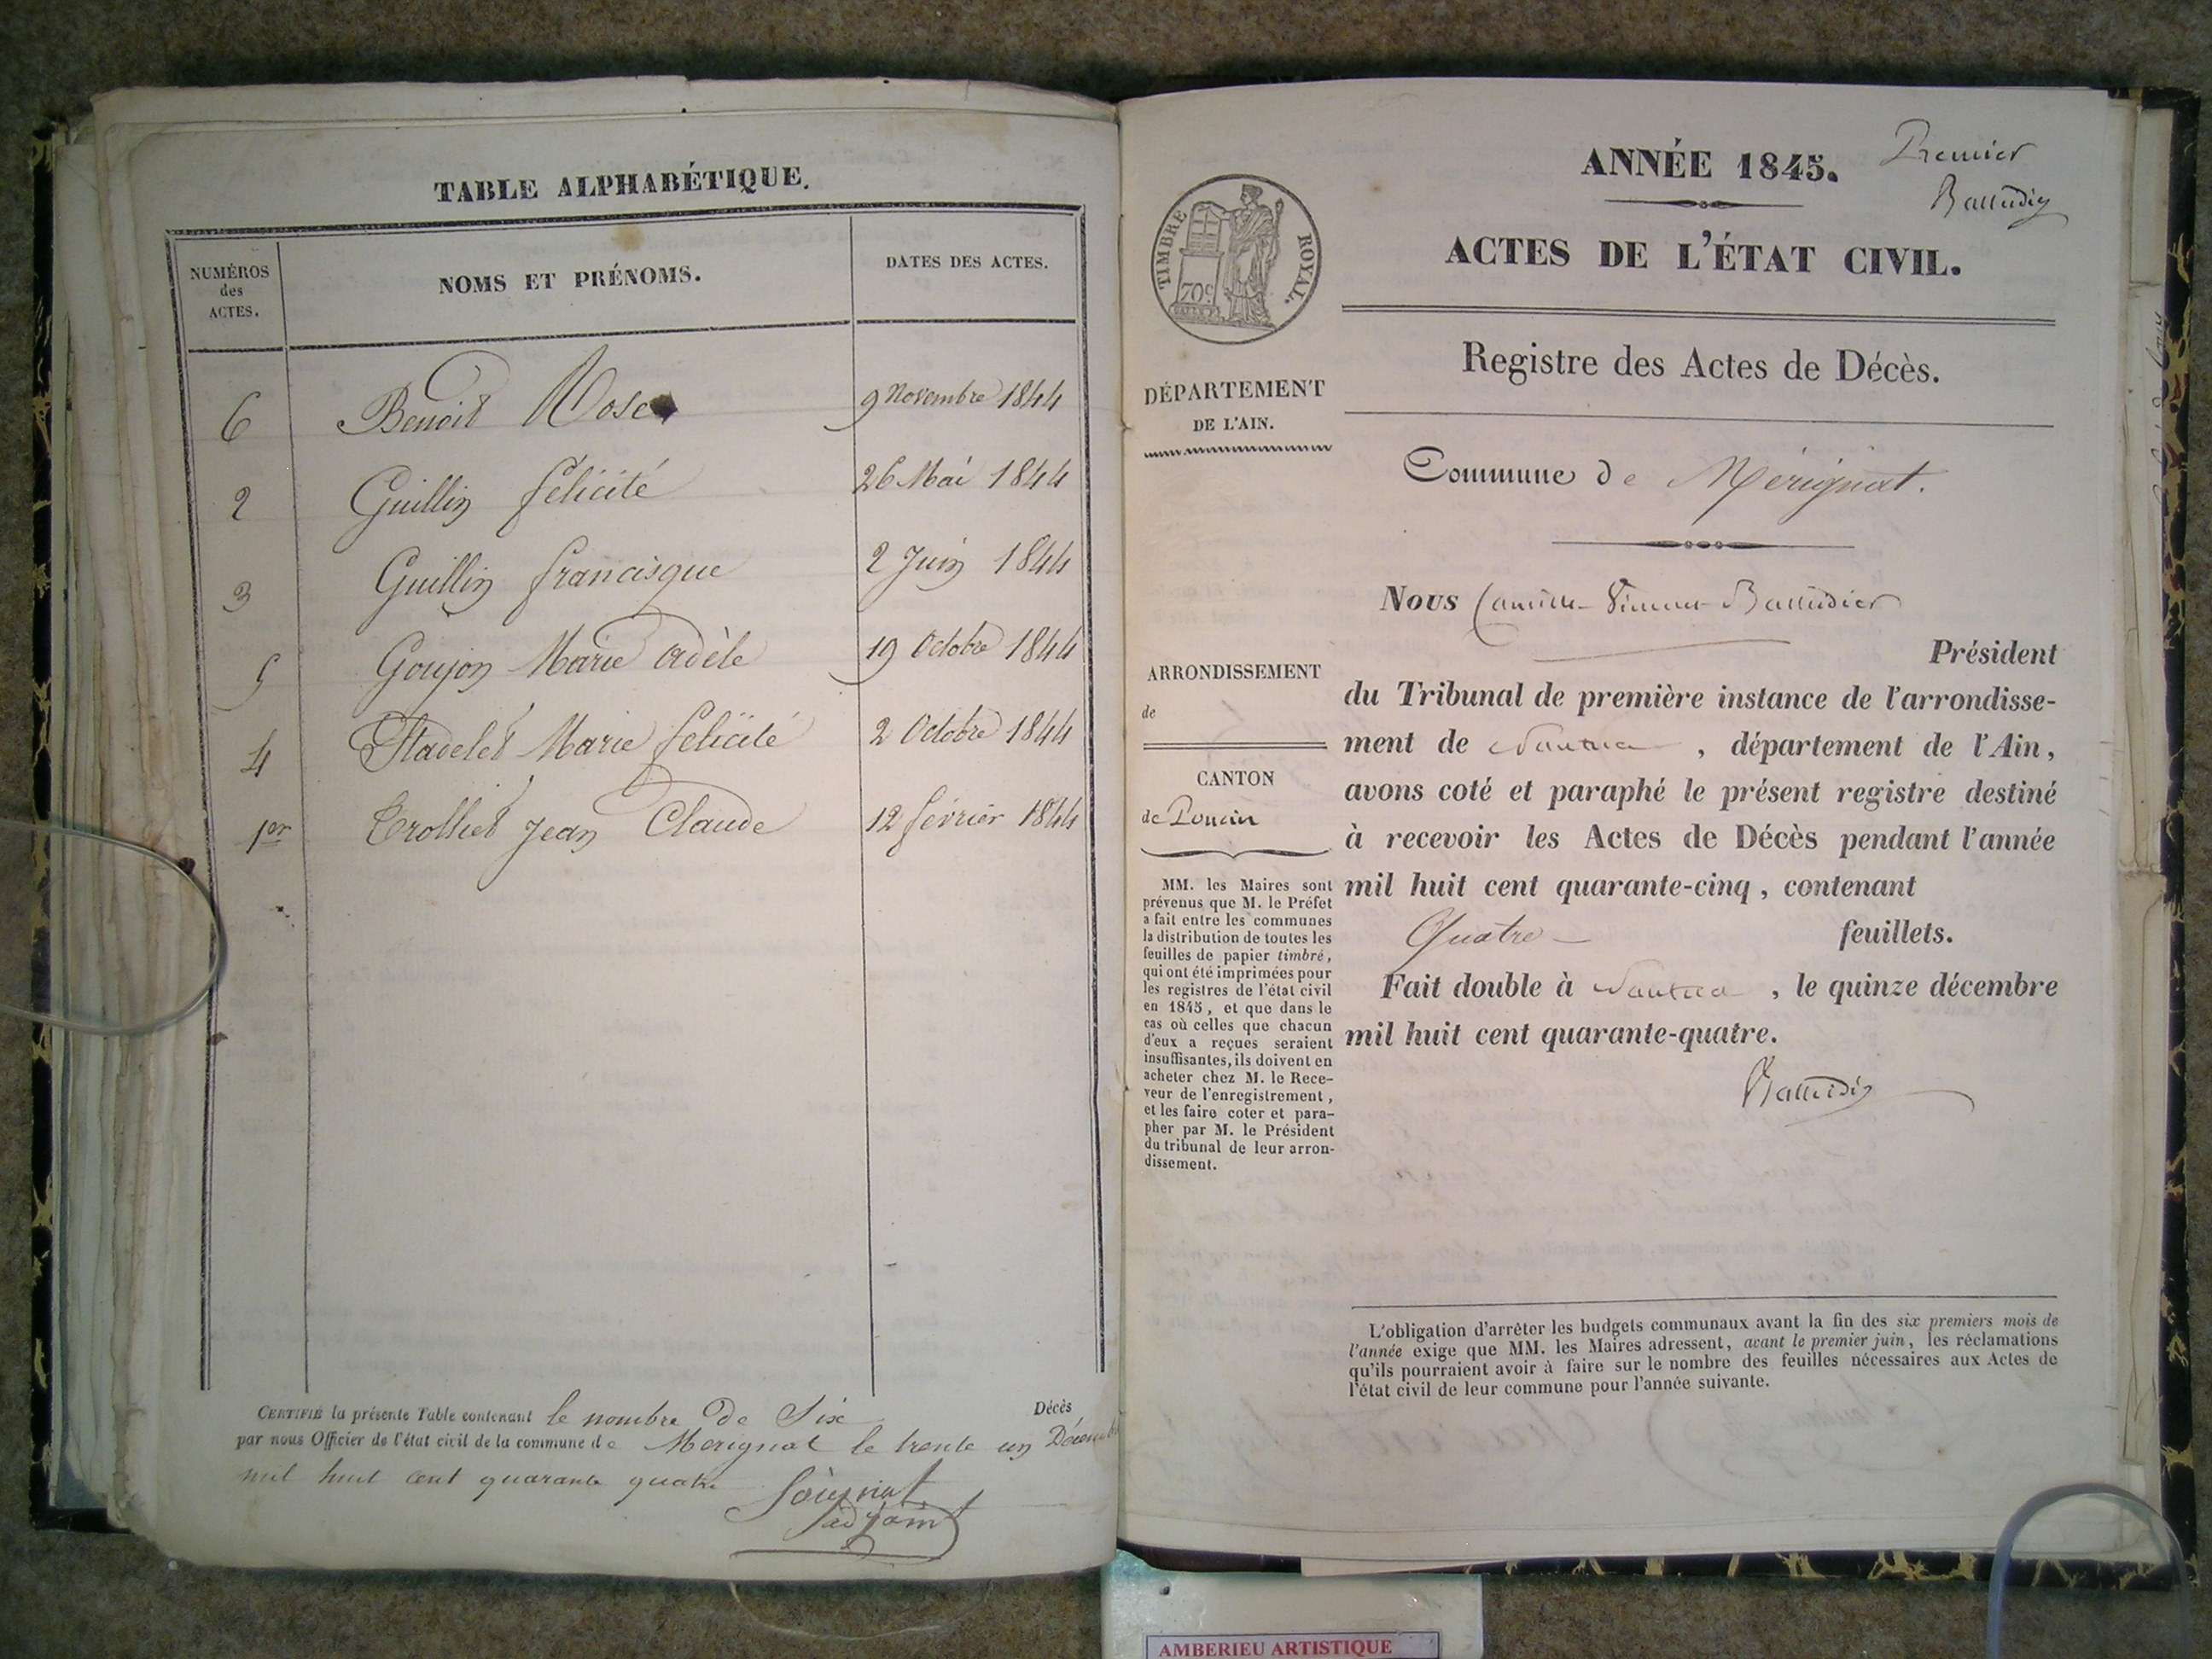 TABLE ALPHABÉTIQUE.
NUMÉROS
des
ACTES.
NOMS ET PRÉNOMS.
DATES DES ACTES.
6 Benoit Rose 9 Novembre 1844
2 Guillin félicité 26 Mai 1844
3 Guillin francisque 2 Juin 1844
5 Goujon Marie adèle 19 Octobre 1844
4 Marie félicité 2 Octobre 1844
1er Trolliet Jean Claude 12 février 1844
CERTIFIÉ la présente Table contenant le nombre de Six Décès
par nous Officier de l'état civil de la commune de Merignat le trente un Décemb
mil huit cent quarante quatre
adjoint
Premier
ANNÉE 1845.
ACTES DE L'ÉTAT CIVIL.
TIMBRE ROYAL.
70c
Registre des Actes de Décès.
DÉPARTEMENT
DE L'AIN.
Commune de Mérignat.
Nous Camille Balludier
Président
ARRONDISSEMENT
de
du Tribunal de première instance de l'arrondisse-
ment de Nantua, département de l'Ain,
avons coté et paraphé le présent registre destiné
à recevoir les Actes de Décès pendant l'année
mil huit cent quarante-cinq, contenant
Quatre feuillets.
Fait double à Nantua, le quinze décembre
mil huit cent quarante-quatre.
CANTON
de Poncin
MM. les Maires sont
prévenus que M. le Préfet
a fait entre les communes
la distribution de toutes les
feuilles de papier timbré,
qui ont été imprimées pour
les registres de l'état civil
en 1845, et que dans le
cas où celles que chacun
d'eux a reçues seraient
insuffisantes, ils doivent en
acheter chez M. le Rece-
veur de l'enregistrement,
et les faire coter et para-
pher par M. le Président
du tribunal de leur arron-
dissement.
L'obligation d'arrêter les budgets communaux avant la fin des six premiers mois de
l'année exige que MM. les Maires adressent, avant le premier juin, les réclamations
qu'ils pourraient avoir à faire sur le nombre des feuilles nécessaires aux Actes de
l'état civil de leur commune pour l'année suivante.
AMBERIEU ARTISTIQUE